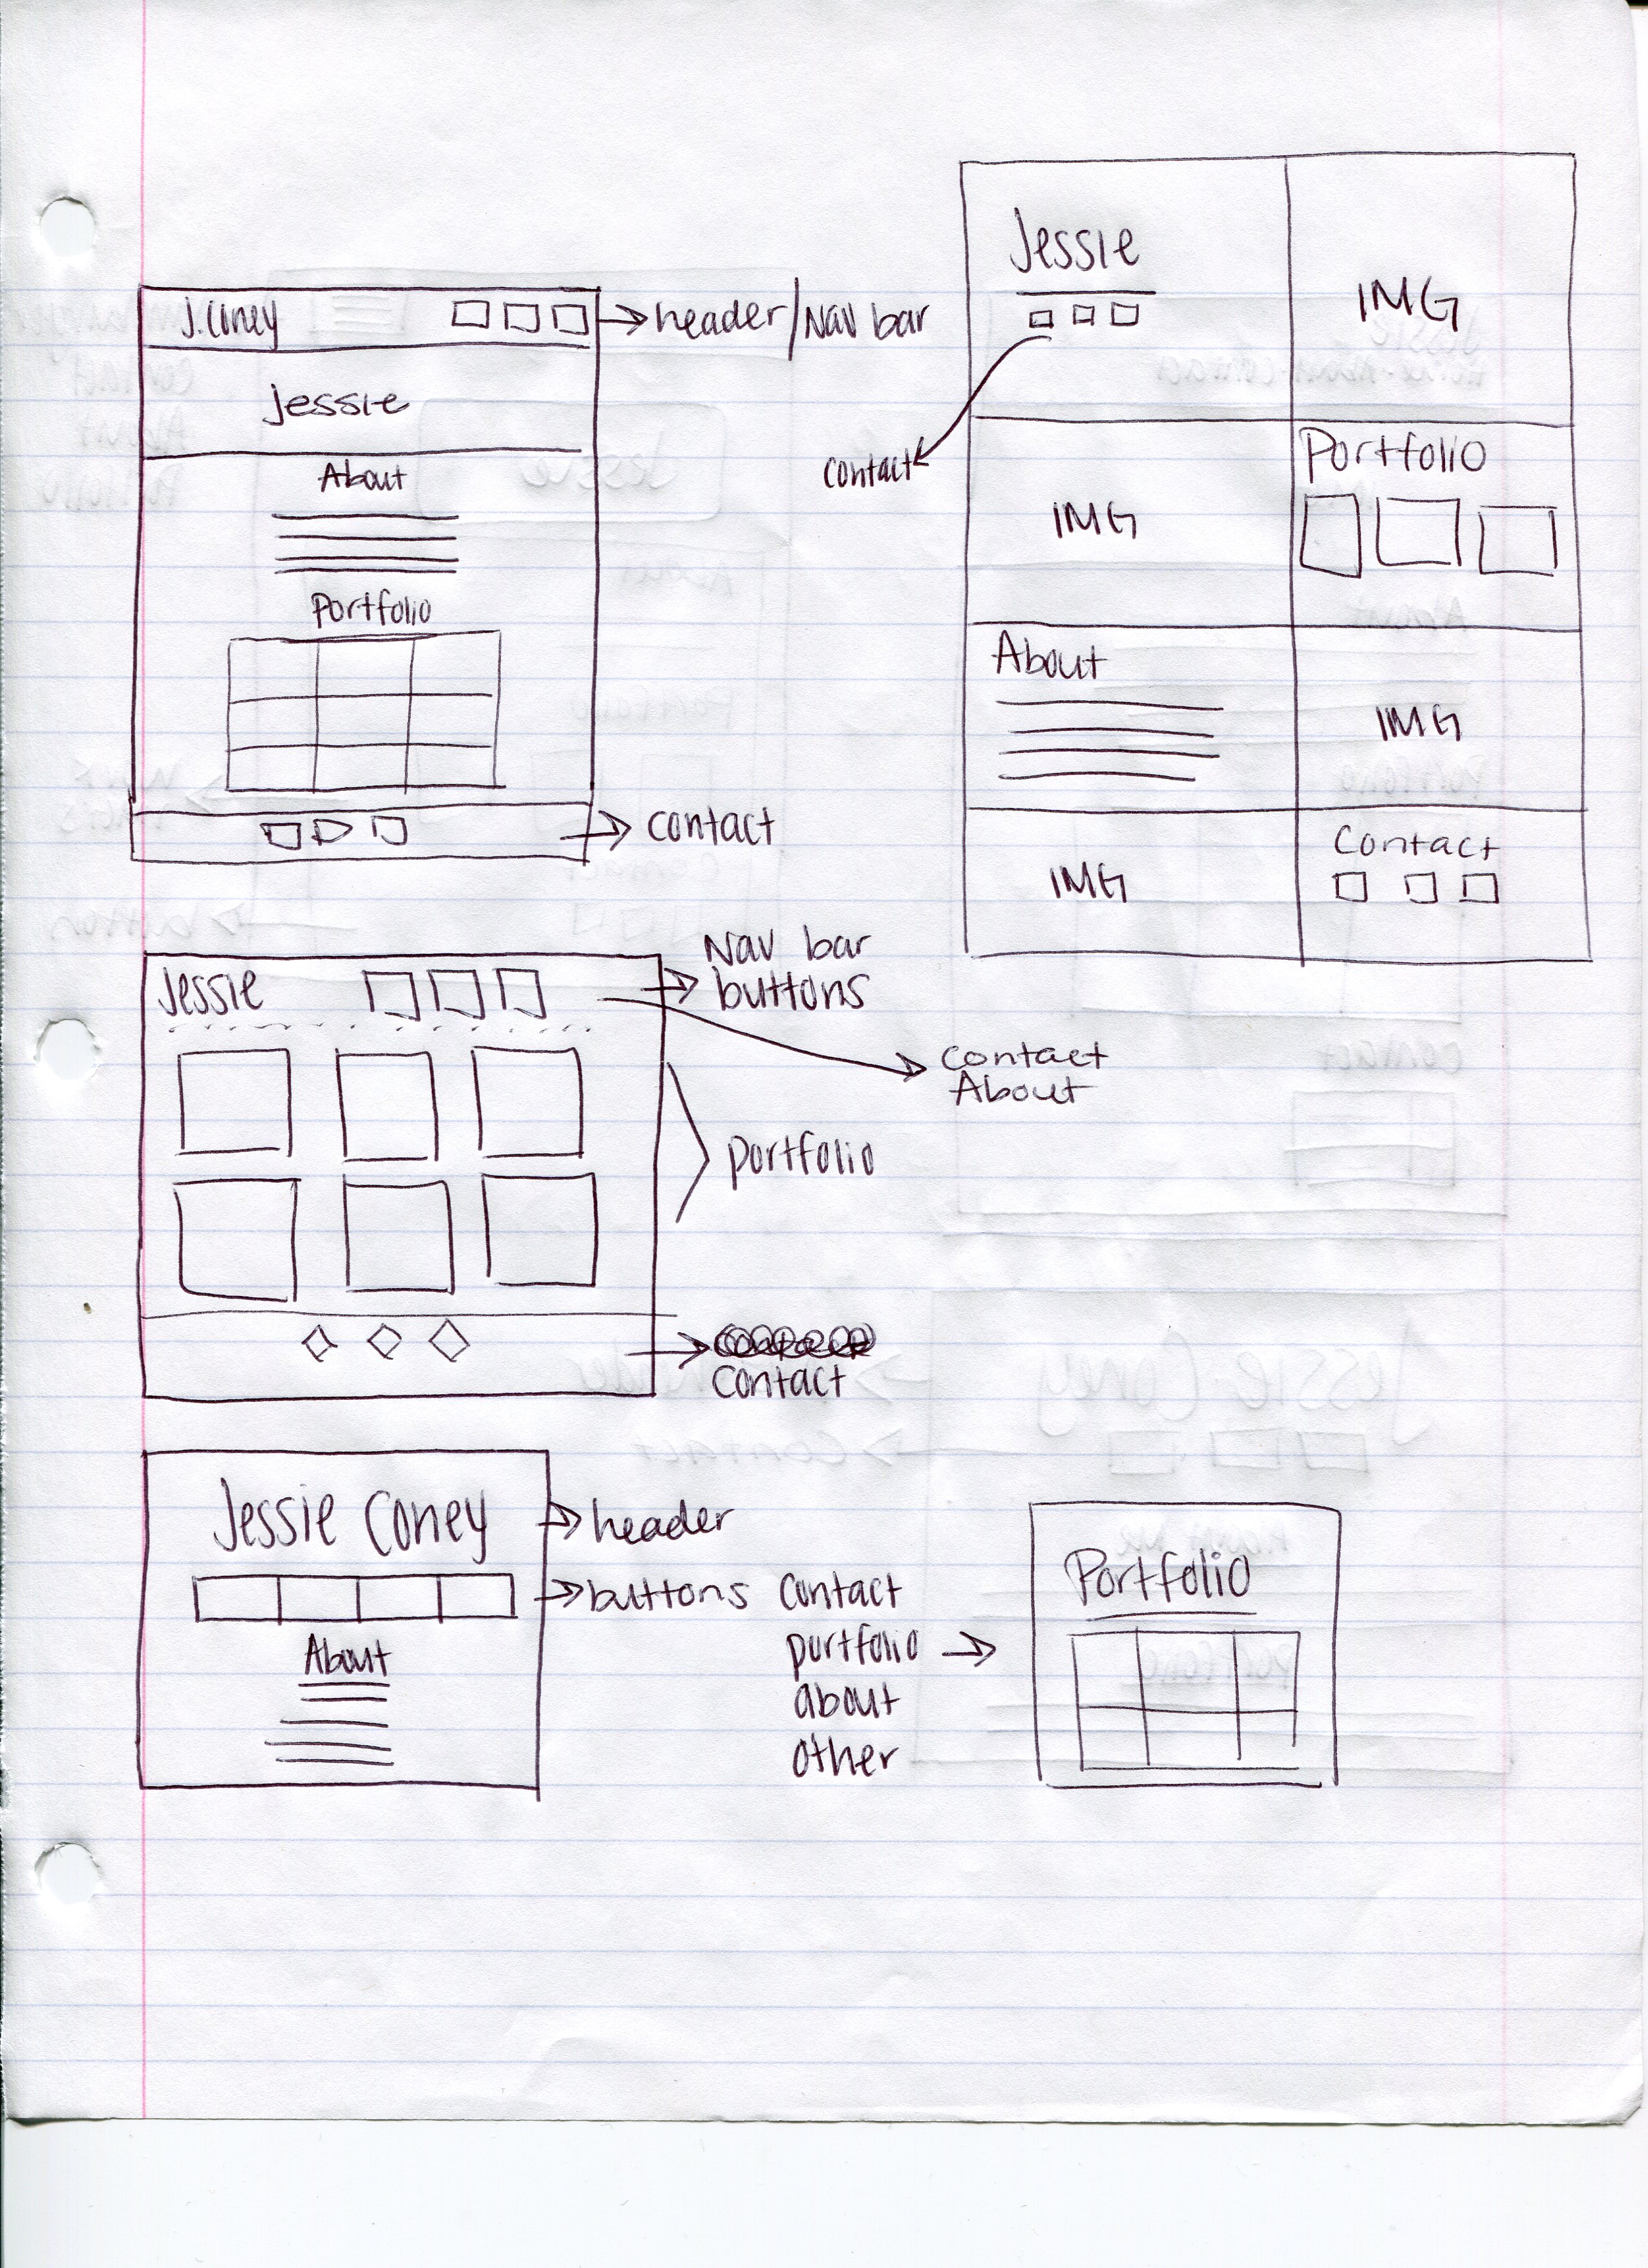 J. Coney
header/Nav bar
Jessie
About
Portfolio
contact
Jessie
IMG
contact
IMG
Portfolio
About
IMG
IMG
Contact
Jessie
Nav bar
buttons
Contact
About
portfolio
Contact
Jessie Coney
header
buttons
About
Contact
portfolio
about
other
Portfolio